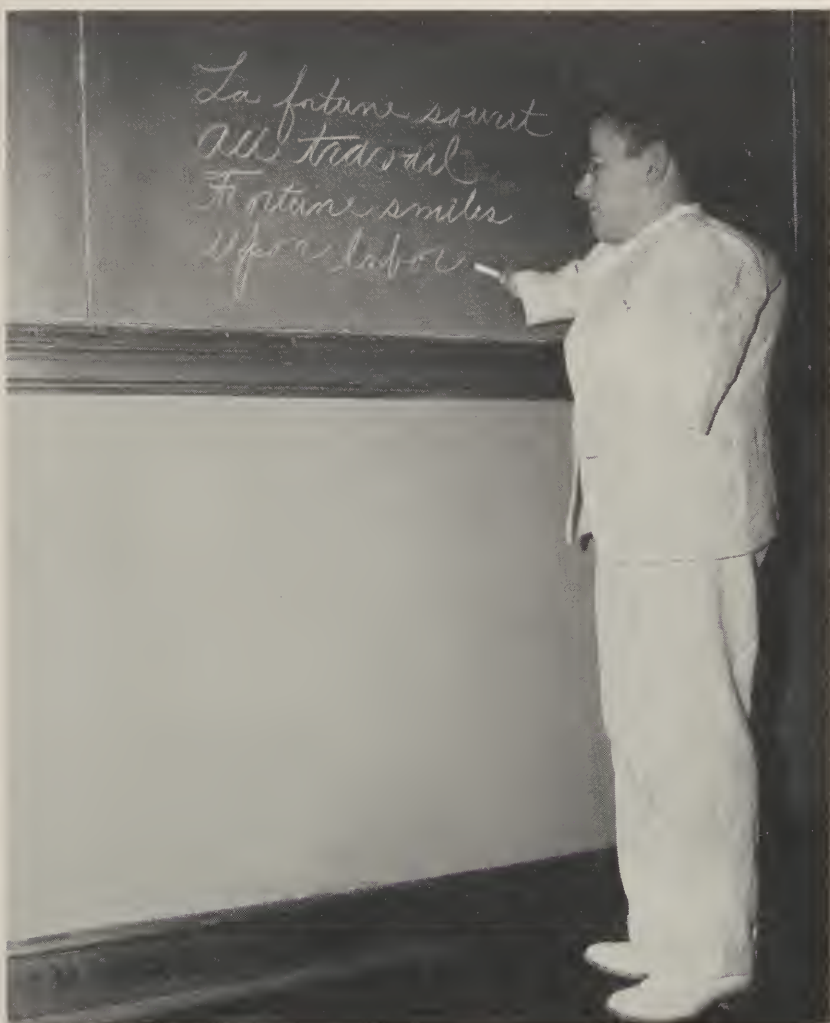 La fortune sourit
au travail
Fortune smiles
upon labor